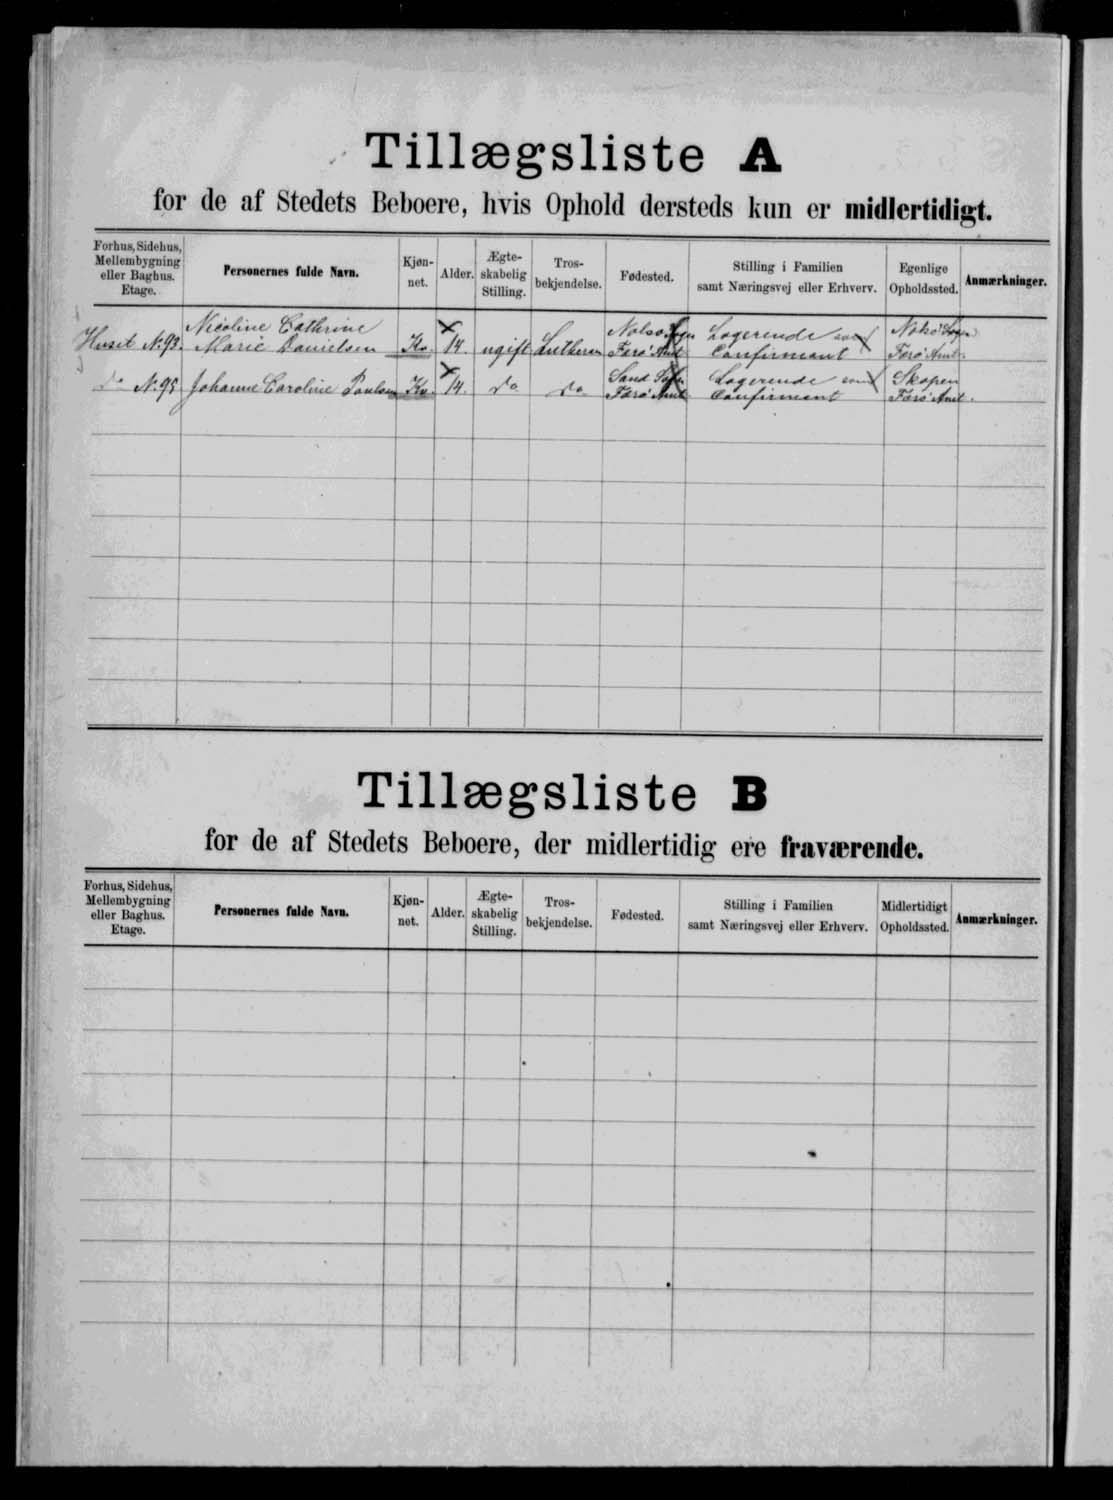 Tillægsliste A
for de af Stedets Beboere, hvis Ophold dersteds kun er midlertidigt.
Forhus, Sidehus, Mellembygning eller Baghus. Etage. Personernes fulde Navn. Kjøn-net. Alder. Ægte-skabelig Stilling. Tros-bekjendelse. Fødested. Stilling i Familien samt Næringsvej eller Erhverv. Egenlige Opholdssted. Anmærkninger.
Nicoline Cathrine Nolsø Sogn Logerende som Nolsø Sogn
Huset No. 93. Marie Danielsen Kv. 14. ugift Lutheran Færø Amt Confirmant Færø Amt.
Sand Logerende som Skopen
do No. 95 Johanne Caroline Poulsen Kv. 14. do do Færø Amt Confirmant Færø Amt.
Tillægsliste B
for de af Stedets Beboere, der midlertidig ere fraværende.
Forhus, Sidehus, Mellembygning eller Baghus. Etage. Personernes fulde Navn. Kjøn-net. Alder. Ægte-skabelig Stilling. Tros-bekjendelse. Fødested. Stilling i Familien samt Næringsvej eller Erhverv. Midlertidigt Opholdssted. Anmærkninger.